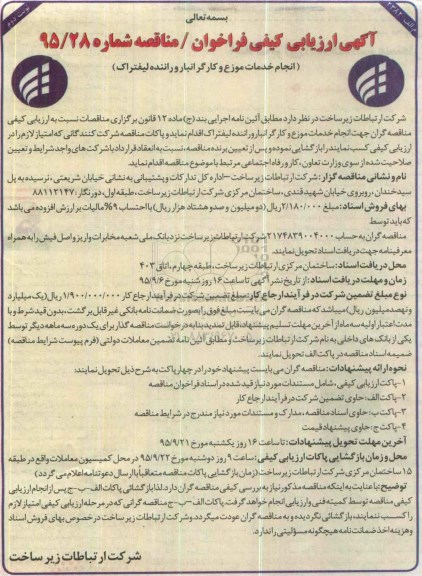 بسمه تعالی
آگهی ارزیابی کیفی فراخوان / مناقصه شماره ۹۵/۲۸
(انجام خدمات موزع و کارگر انبار و راننده لیفتراک)
شرکت ارتباطات زیرساخت در نظر دارد مطابق آئین نامه اجرایی بند (ج) ماده ۱۲ قانون برگزاری مناقصات نسبت به ارزیابی کیفی
مناقصه گران جهت انجام خدمات موزع و کارگر انبار و راننده لیفتراک اقدام نماید و پاکات مناقصه شرکت کنندگانی که امتیاز لازم را در
ارزیابی کیفی کسب نمایند را بازگشایی نموده و پس از تعیین برنده مناقصه، نسبت به انعقاد قرارداد با شرکت های واجد شرایط و تعیین
صلاحیت شده از سوی وزارت تعاون، کار و رفاه اجتماعی مرتبط با موضوع مناقصه اقدام نماید.
نام و نشانی مناقصه گزار: شرکت ارتباطات زیرساخت - اداره کل تدارکات و پشتیبانی به نشانی خیابان شریعتی، نرسیده به پل
سیدخندان، روبروی خیابان شهید قندی، ساختمان مرکزی شرکت ارتباطات زیرساخت، طبقه اول، دورنگار: ۸۸۱۱۲۱۴۷
بهای فروش اسناد: مبلغ ۲/۱۸۰/۰۰۰ ریال (دو میلیون و صد و هشتاد هزار ریال) با احتساب ۹٪ مالیات بر ارزش افزوده می باشد
که باید توسط
مناقصه گران به حساب ۲۱۷۴۸۳۹۰۰۴۰۰۰ شرکت ارتباطات زیرساخت نزد بانک ملی شعبه مخابرات واریز و اصل فیش را به همراه
معرفینامه جهت دریافت اسناد تحویل نمایند.
محل دریافت اسناد: ساختمان مرکزی ارتباطات زیرساخت، طبقه چهارم، اتاق ۴۰۳
زمان و مهلت دریافت اسناد: از تاریخ نشر آگهی تا ساعت ۱۶ روز شنبه مورخ ۹۵/۹/۶
نوع مبلغ تضمین شرکت در فرآیند ارجاع کار: مبلغ تضمین شرکت در فرآیند ارجاع کار ۱/۹۰۰/۰۰۰/۰۰۰ ریال (یک میلیارد
و نهصد میلیون ریال) میباشد که مناقصه گران می بایست مبلغ فوق را بصورت ضمانت نامه بانکی غیر قابل برگشت، بدون قید و شرط و با
مدت اعتبار اولیه سه ماه از آخرین مهلت تسلیم پیشنهاد، قابل تمدید بنا به درخواست مناقصه گذار برای یک دوره سه ماهه دیگر توسط
یکی از بانک های داخلی به نام شرکت ارتباطات زیرساخت و مطابق آئین نامه تضمین معاملات دولتی (فرم پیوست شرایط مناقصه)
ضمیمه اسناد مناقصه در پاکت الف تحویل نمایند.
نحوه ارائه پیشنهادات: مناقصه گران می بایست پیشنهاد خود را در چهار پاکت به شرح ذیل تحویل نمایند:
۱- پاکت ارزیابی کیفی، شامل مستندات مورد نیاز قید شده در اسناد فراخوان مناقصه
۲- پاکت الف: حاوی تضمین شرکت در فرآیند ارجاع کار
۳- پاکت ب: حاوی اسناد مناقصه، مدارک و مستندات مورد نیاز مندرج در شرایط مناقصه
۴- پاکت ج: حاوی پیشنهاد قیمت
آخرین مهلت تحویل پیشنهادات: تا ساعت ۱۶ روز یکشنبه مورخ ۹۵/۹/۲۱
محل و زمان بازگشایی پاکات ارزیابی کیفی: ساعت ۹ روز دوشنبه مورخ ۹۵/۹/۲۲ در محل کمیسیون معاملات واقع در طبقه
۱۵ ساختمان مرکزی شرکت ارتباطات زیرساخت (زمان بازگشایی پاکات مناقصه متعاقباً با ارسال دعوتنامه اعلام می گردد)
توضیح: با عنایت به اینکه مناقصه مذکور نیاز به بررسی ارزیابی کیفی مناقصه گران دارد، لذا بازگشائی پاکات الف-ب-ج پس از انجام ارزیابی
کیفی مناقصه توسط کمیته فنی و ارزیابی انجام خواهد گرفت. پاکات الف-ب-ج مناقصه گرانی که در مرحله ارزیابی کیفی امتیاز لازم
را کسب ننمایند، بازگشائی نگردیده و به مناقصه گران عودت میگردد و شرکت ارتباطات زیرساخت در خصوص بهای فروش اسناد
و هزینه اخذ ضمانت نامه هیچگونه مسؤلیتی را ندارد.
شرکت ارتباطات زیرساخت